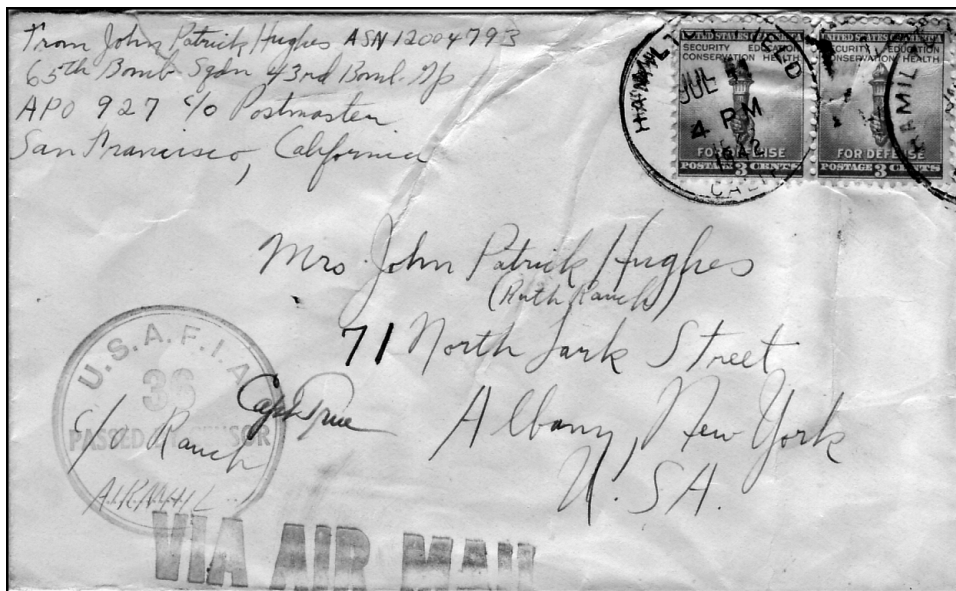 From John Patrick Hughes ASN 12004793
65th Bomb Sqdn 43rd Bomb. Gp
APO 927 c/o Postmaster
San Francisco, California
HAMILTON FIELD
JUL
4 PM
1942
CALIF
UNITED STATES OF AMERICA
SECURITY EDUCATION
CONSERVATION HEALTH
FOR DEFENSE
POSTAGE 3 CENTS
UNITED STATES OF AMERICA
SECURITY EDUCATION
CONSERVATION HEALTH
FOR DEFENSE
POSTAGE 3 CENTS
HAMIL
Mrs John Patrick Hughes
(Ruth Ranch)
71 North Lark Street
Albany, New York
U.S.A.
U.S.A.F.I.A.
36
PASSED BY CENSOR
Capt
c/o Ranch
AIRMAIL
VIA AIR MAIL